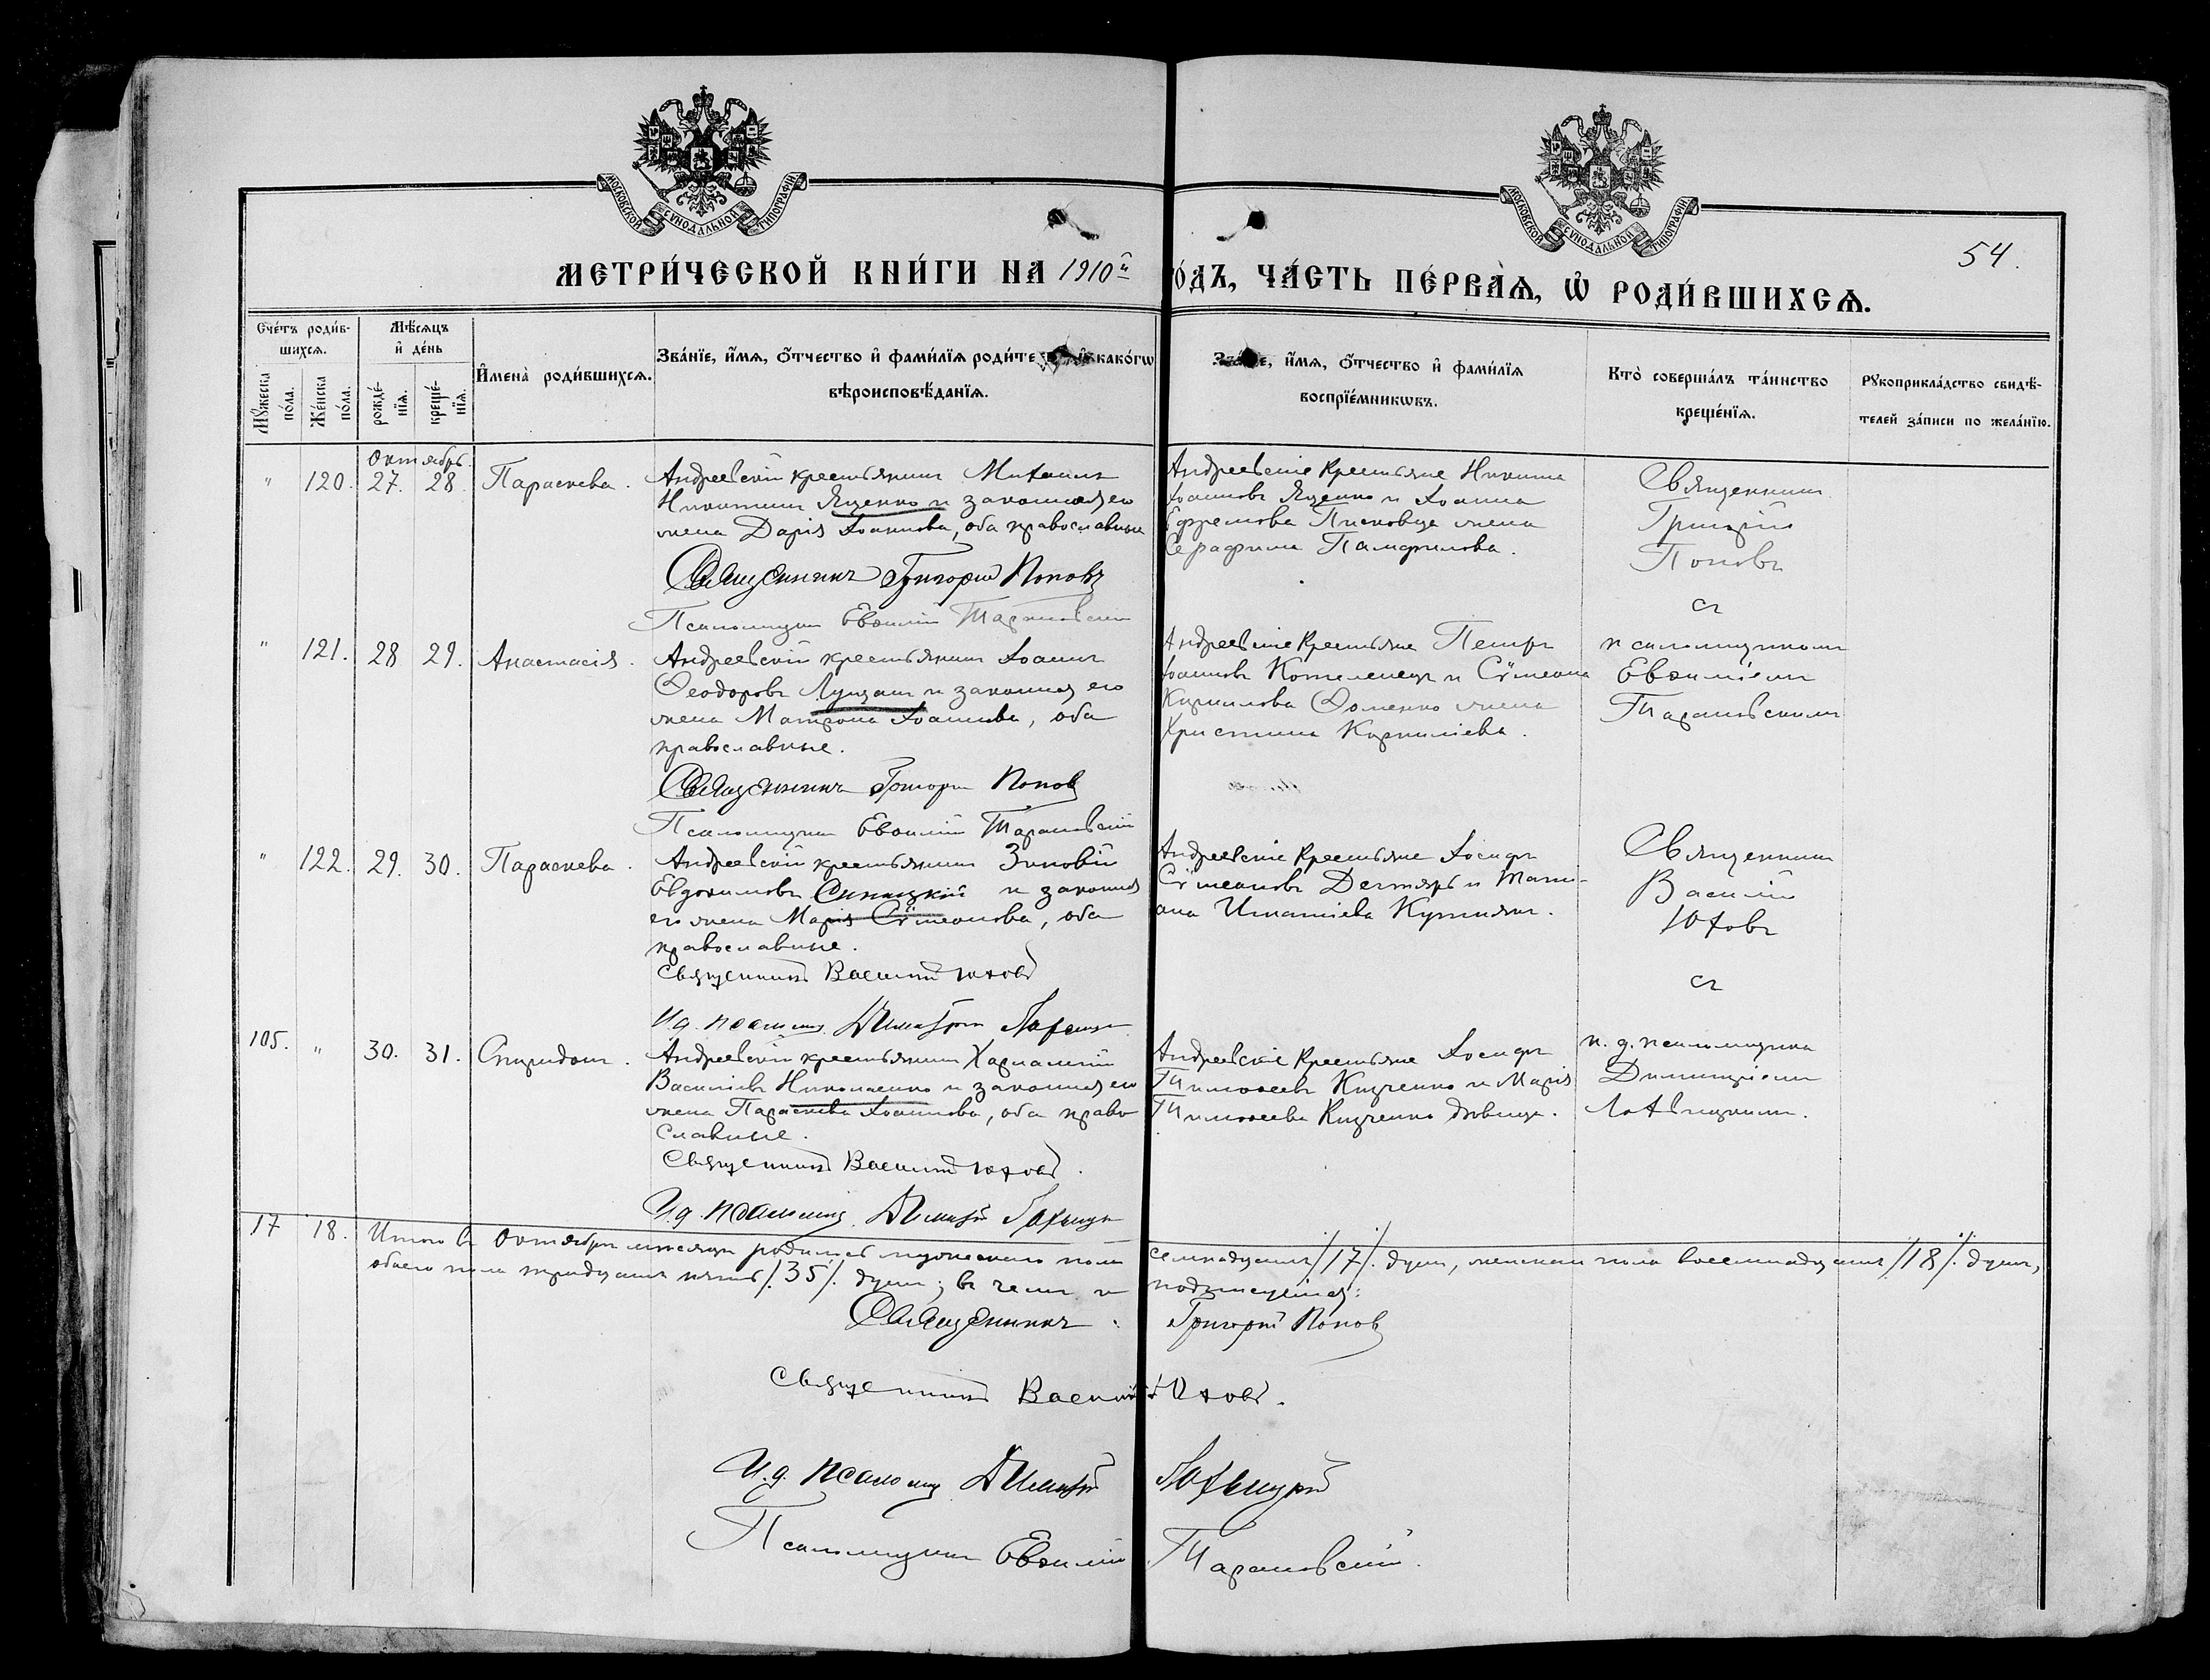 МОСКОВСКОЙ СѴНОДАЛЬНОЙ ТИПОГРАФІИ
МОСКОВСКОЙ СѴНОДАЛЬНОЙ ТИПОГРАФІИ
54.
МЕТРИ́ЧЕСКОЙ КНИ́ГИ НА 1910й
О́ДЪ, ЧА́СТЬ ПЕ́РВАѦ, Ѽ РОДИ́ВШИХСѦ.
Сче́тъ роди́в-
шихсѧ.
Мѣ́сѧцъ
и҆ де́нь
Мꙋ́жеска
по́ла.
Же́нска
по́ла.
рожде́-
нїѧ.
креще́-
нїѧ.
И҆мена̀ роди́вшихсѧ.
Зва́нїе, и҆́мѧ, о҆́тчество и҆ фами́лїѧ роди́те и҆ како́гѡ
вѣроисповѣ́данїѧ.
е, и҆́мѧ, о҆́тчество и҆ фами́лїѧ
воспрїе́мникѡвъ.
Кто̀ соверша́лъ та́инство
креще́нїѧ.
Рꙋкоприкла́дство свидѣ́-
телей за́писи по жела́нїю.
Октябрь
" 120. 27. 28. Параскева.
Андреевскій крестьянинъ Михаилъ
Никитинъ Яценко и законная его
жена Дарія Іоаннова, оба православные
Священникъ Григорій Поповъ
Псаломщикъ Евѳимій Тарановскій
Андреевскіе крестьяне Никита
Іоанновъ Яценко и Іоанна
Ефремова Писковца жена
Серафима Памфилова.
Священникъ
Григорій
Поповъ
съ
псаломщикомъ
Евѳиміемъ
Тарановскимъ
" 121. 28 29. Анастасія.
Андреевскій крестьянинъ Іоаннъ
Ѳеодоровъ Лущанъ и законная его
жена Матрона Іоаннова, оба
православные.
Священникъ Григорій Поповъ
Псаломщикъ Евѳимій Тарановскій
Андреевскіе крестьяне Петръ
Іоанновъ Котелевецъ и Сѷмеона
Кириллова Ѳоменко жена
Христина Корниліева.
" 122. 29. 30. Параскева.
Андреевскій крестьянинъ Зиновій
Евдокимовъ Синицкій и законная
его жена Марія Сѷмеонова, оба
православные.
Священникъ Василій Юховъ
И.д. псаломщ. Димитрій
Андреевскіе крестьяне Іосифъ
Сѷмеоновъ Дегтярь и Тати-
ана Игнатіева
Священникъ
Василій
Юховъ
съ
и. д. псаломщика
Димитріемъ
105. " 30. 31. Спиридонъ.
Андреевскій крестьянинъ Харлампій
Василіевъ Николаенко и законная его
жена Параскева Іоаннова, оба право-
славные.
Священникъ Василій Юховъ.
И.д. псаломщ. Димитрій
Андреевскіе крестьяне Іосифъ
Тимоѳеевъ Кузченко и Марія
Тимоѳеева Кузченко дѣвица.
17 18. Итого въ Октябрѣ мѣсяцѣ родилось мужескаго пола семнадцать /.17./ душъ, женскаго пола восемнадцать /.18./ душъ,
обоего пола тридцать пять /.35./ душъ; въ чемъ и подписуемся:
Священникъ Григорій Поповъ
Священникъ Василій Юховъ.
И.д. псаломщ Димитрій
Псаломщикъ Евѳимій Тарановскій.